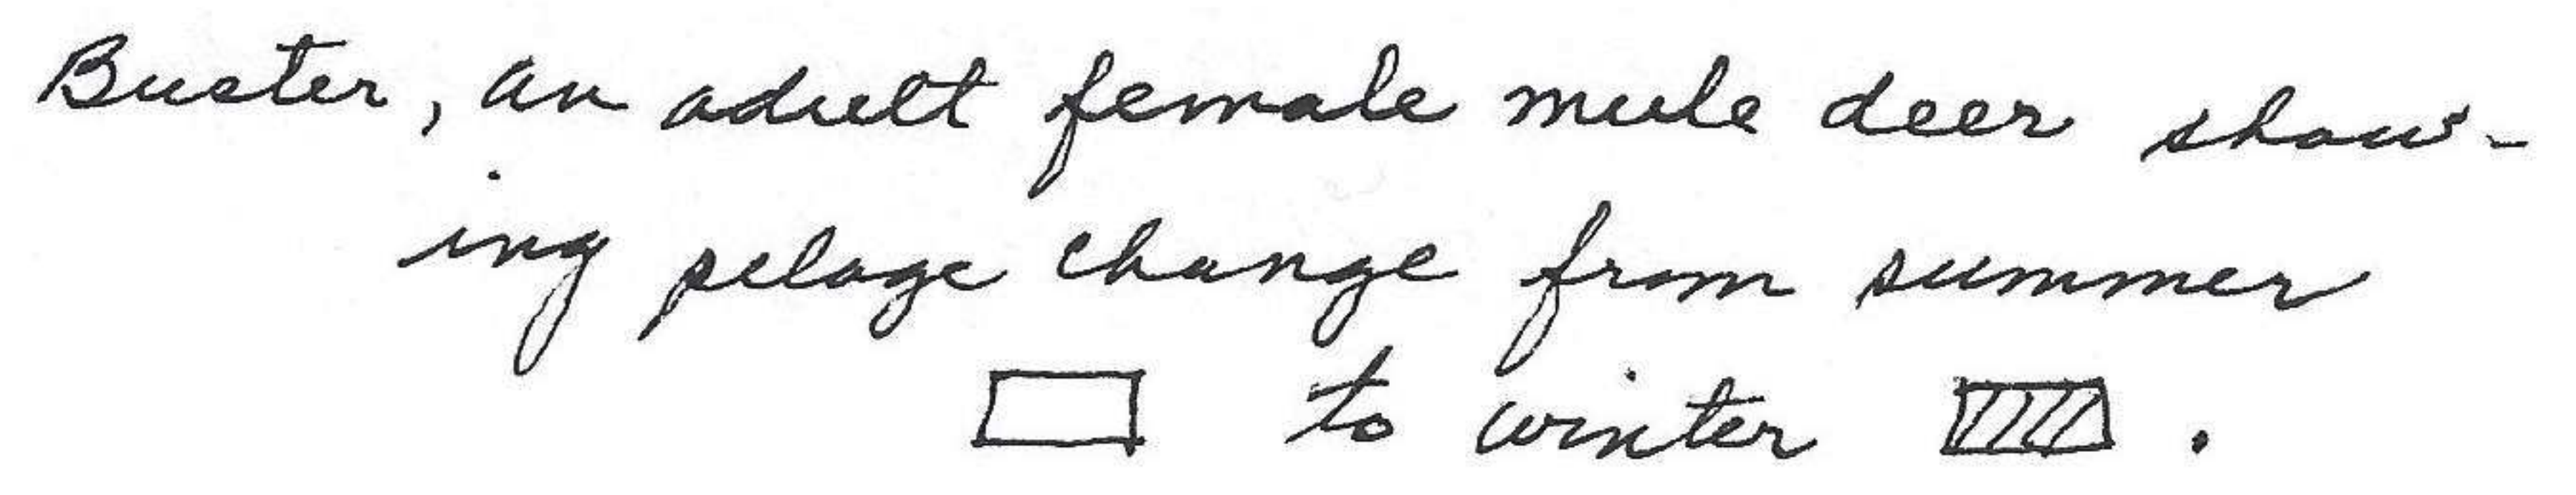 Buster, an adult female mule deer show-
ing pelage change from summer
to winter .